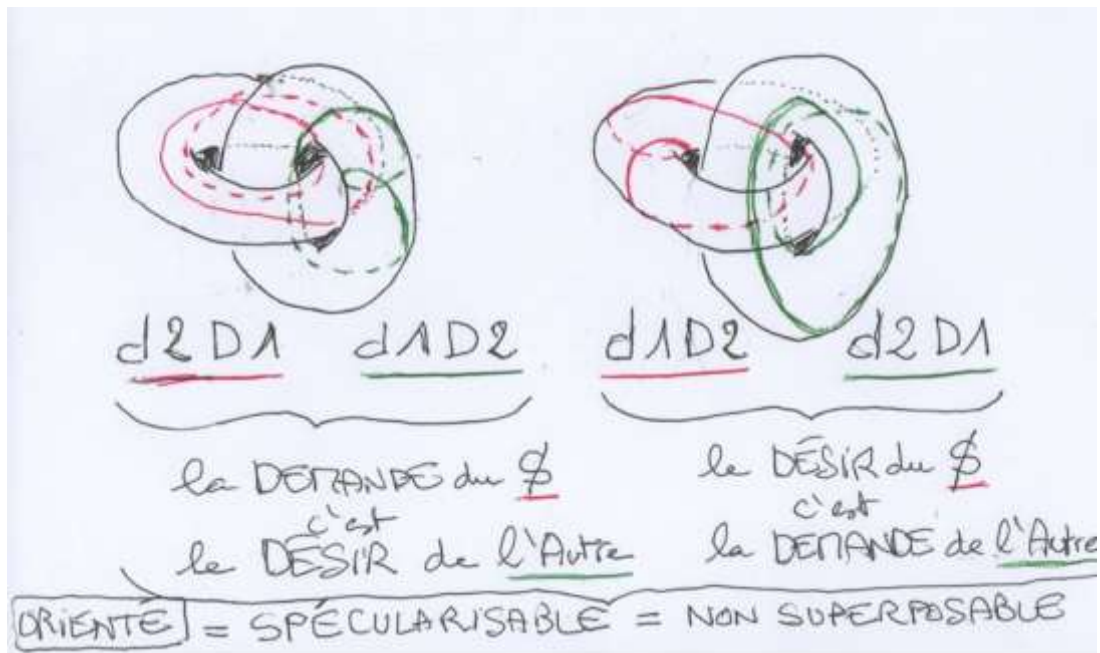 d2D1 d1D2 d1D2 d2D1
la DEMANDE du $
c'est
le DÉSIR de l'Autre
le DÉSIR du $
c'est
la DEMANDE de l'Autre
ORIENTÉ = SPÉCULARISABLE = NON SUPERPOSABLE